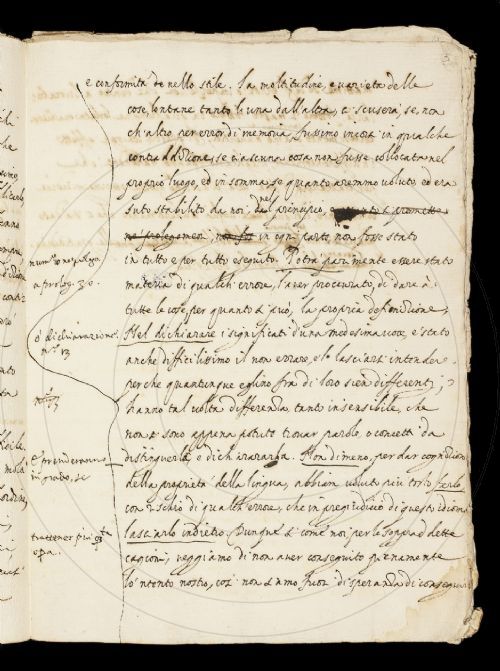 e conformità de nello stile. La moltitudine, e varietà delle
cose, lontane tanto l'una dall'altra, ci scuserà, se, non
ch'altro per error di memoria, fussimo incorsi in qualche
contraddizione, se ciascuna cosa non fusse collocata nel
proprio luogo, ed in somma, se quanto avemmo voluto, ed era
suto stabilito da noi nel principio,
in ogni parte non fosse stato
in tutto e per tutto eseguito. Potrà parimente essere stato
materia di qualch'errore, l'aver procurato, di dare à
tutte le cose, per quanto s'è può, la propria definizione;
Nel dichiarare i significati d'una medesima voce, è stato
anche difficilissimo il non errare, e 'l lasciarsi intendere.
perche quantunque eglino fra di loro sien differenti;
hanno tal volta differenza, tanto insensibile, che
non si sono appena potuto trovar parole, o concetti da
distinguerla o dichiararla. Non di meno, per dar cognizione
della proprietà della lingua, abbiam voluto più tosto farlo
con rischio di qualch'errore, che in pregiudicio di quest'idioma
lasciarlo indietro. Dunque se come noi, per le soppraddette
cagioni, veggiamo di non aver conseguito pienamente
lo 'ntento nostro, così non siamo fuor di speranza di conseguir
a prolog. 30.
ò dichiarazione.
n.º 13
e prenderanno
in grado, se